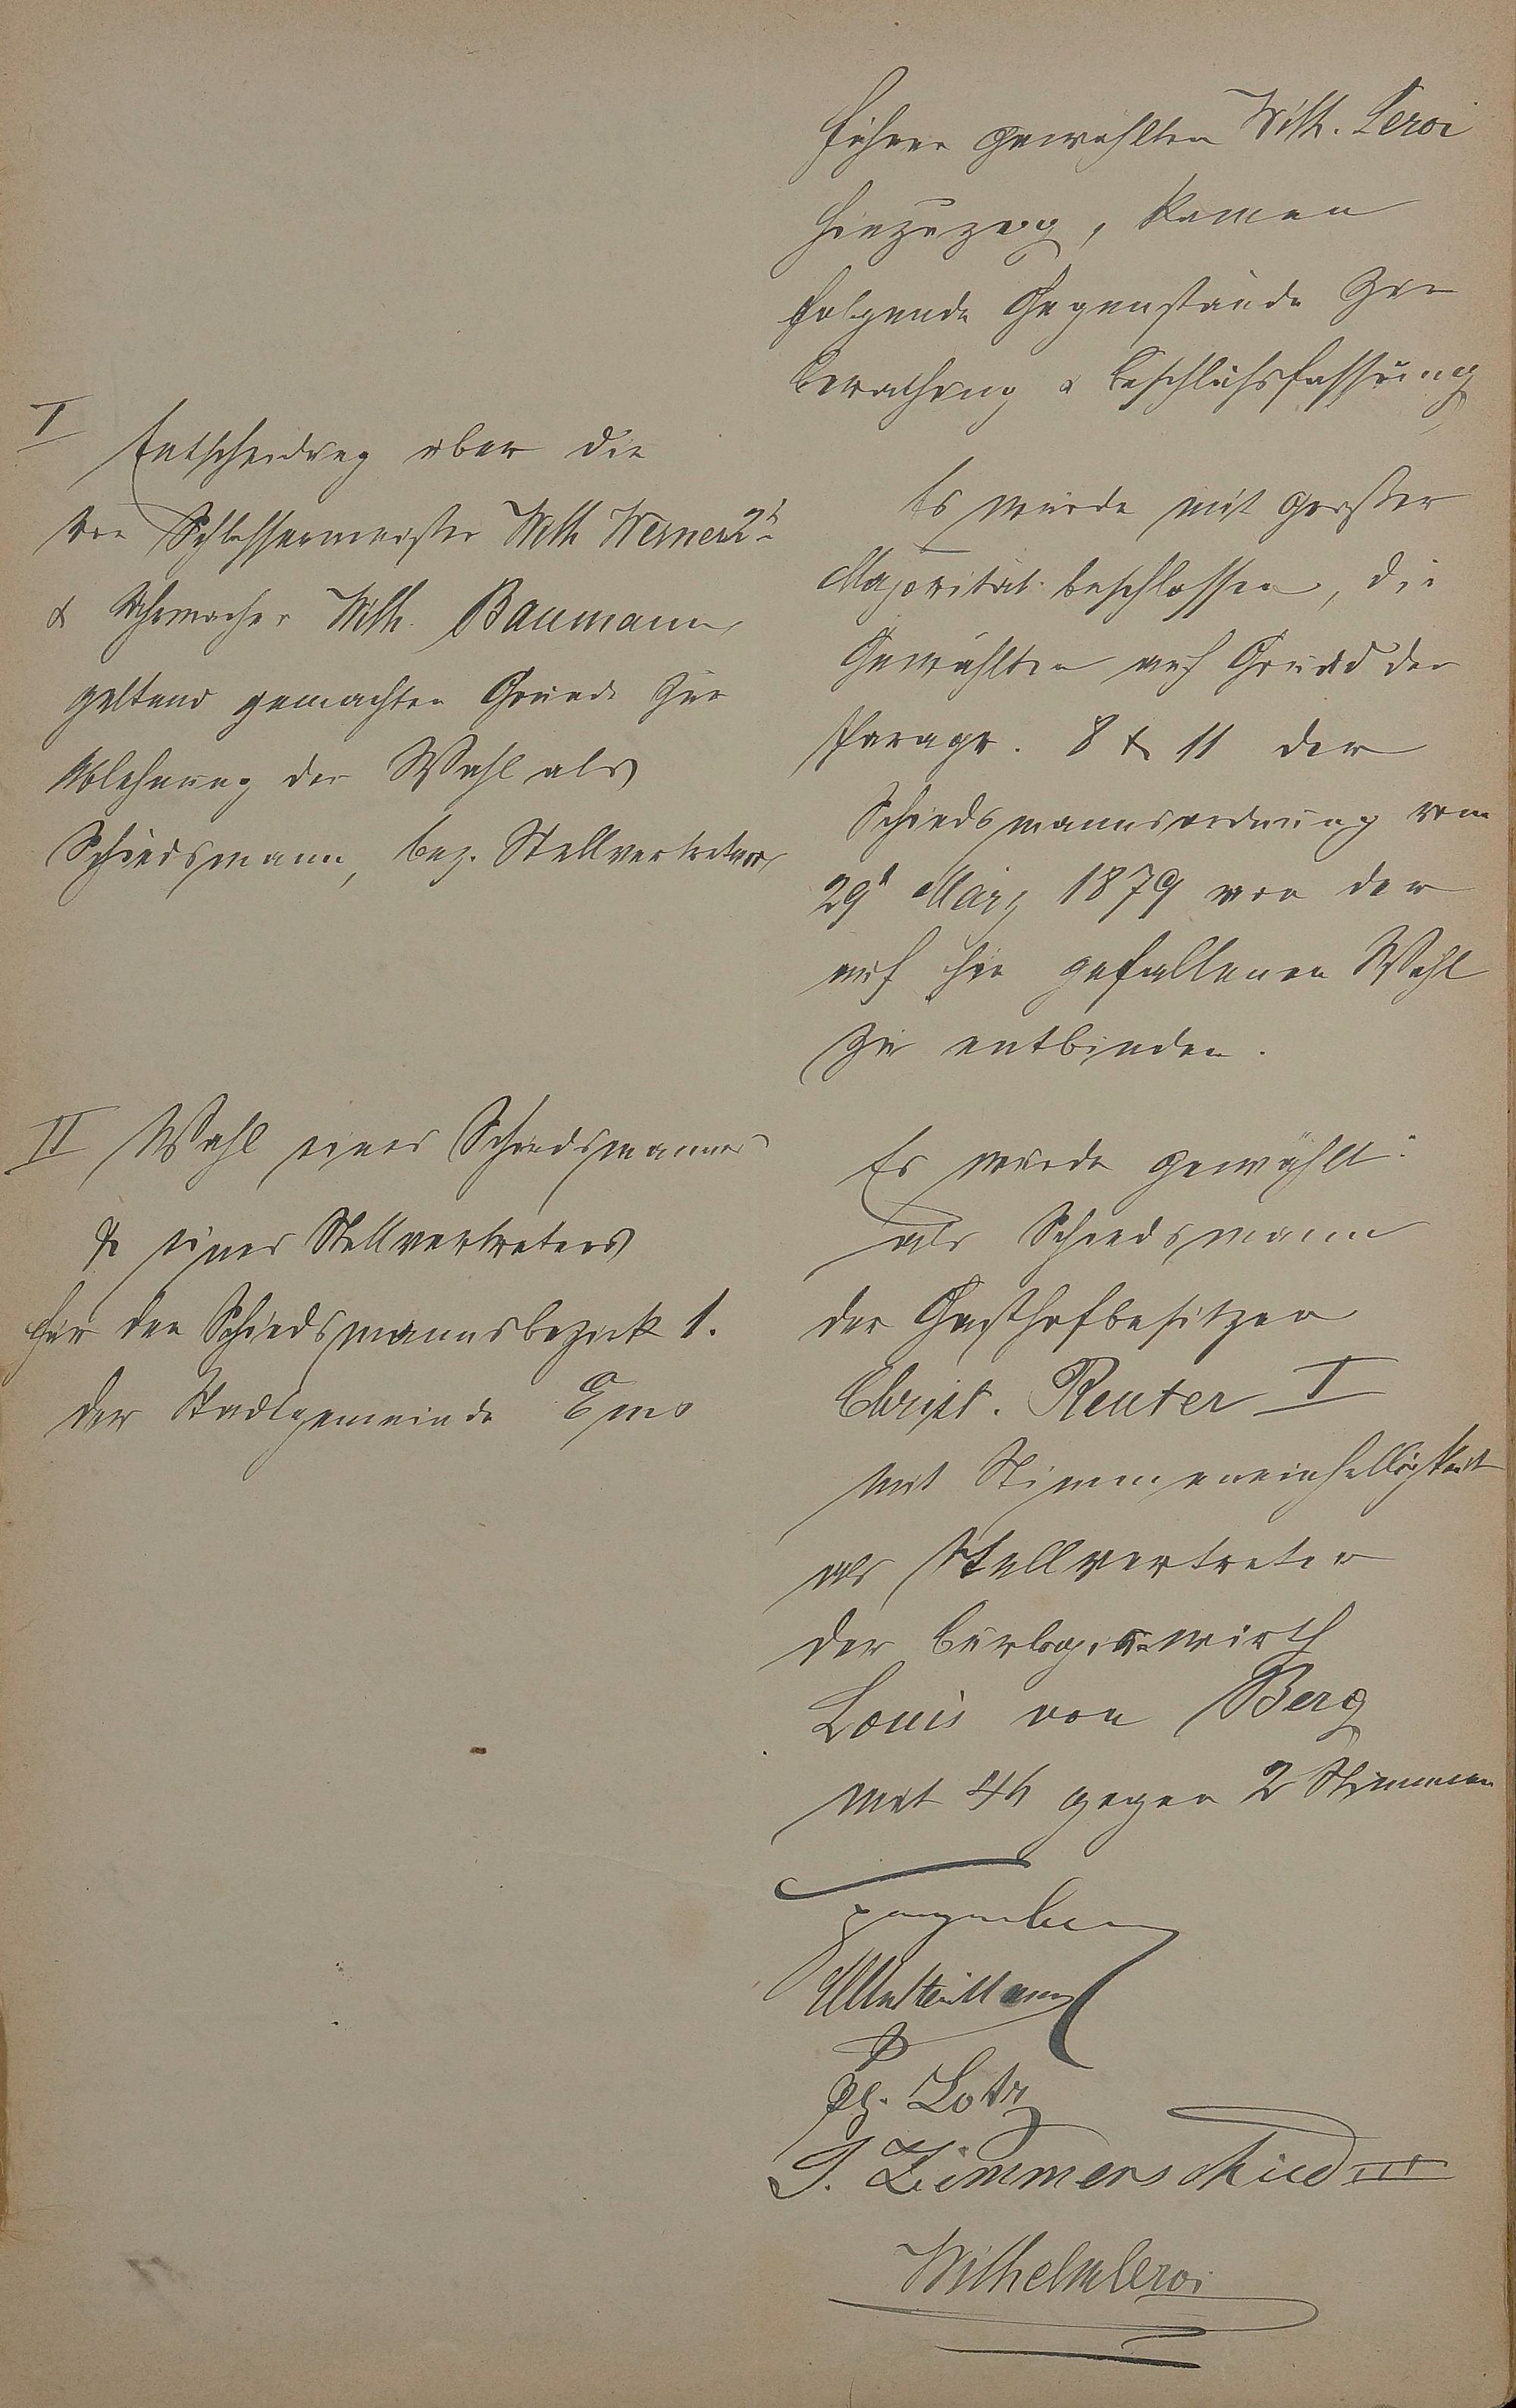 führer gewählten Wilh. Leroi
hinzuzog, kamen
folgende Gegenstände zur
Berathung & Beschlußfassung
I
Entscheidung über die
von Schlossermeister Wilh Werner 2r
& Uhrmacher Wilh. Baumann
geltend gemachten Gründe zur
Ablehnung der Wahl als
Schiedsmann, bez. Stellvertreter
Es wurde mit großer
Majorität beschlossen, die
Gewählten auf Grund der
Paragr. 8 & 11 der
Schiedsmannsordnung vom
29t März 1879 von der
auf sie gefallenen Wahl
zu entbinden.
II Wahl eines Schiedsmannes
& eines Stellvertreters
für den Schiedsmannsbezirk 1.
der Stadtgemeinde Ems
Es wurde gewählt:
als Schiedsmann
der Gasthofbesitzer
Christ. Reuter I
mit Stimmeneinhelligkeit
als Stellvertreter
der
Louis von Berg
mit gegen 2 Stimmen
Ph. Lotz
P. Zimmerschied III
Wilhelm Leroi